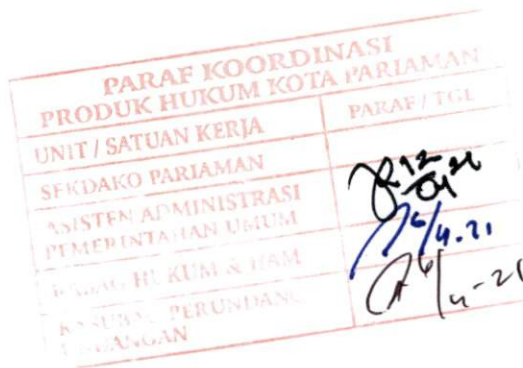 PARAF KOORDINASI
PRODUK HUKUM KOTA PARIAMAN
UNIT / SATUAN KERJA
PARAF / TGL
SEKDAKO PARIAMAN
12
04 21
ASISTEN ADMINISTRASI
PEMERINTAHAN UMUM
6/4.21
KABAG HUKUM & HAM
KASUBAG PERUNDANG
UNDANGAN
6/4-21